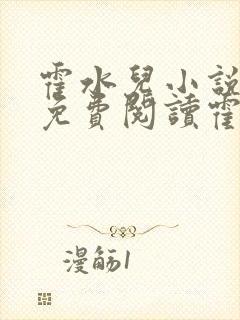 霍水兒小說
免費閱讀霍
漫觞1